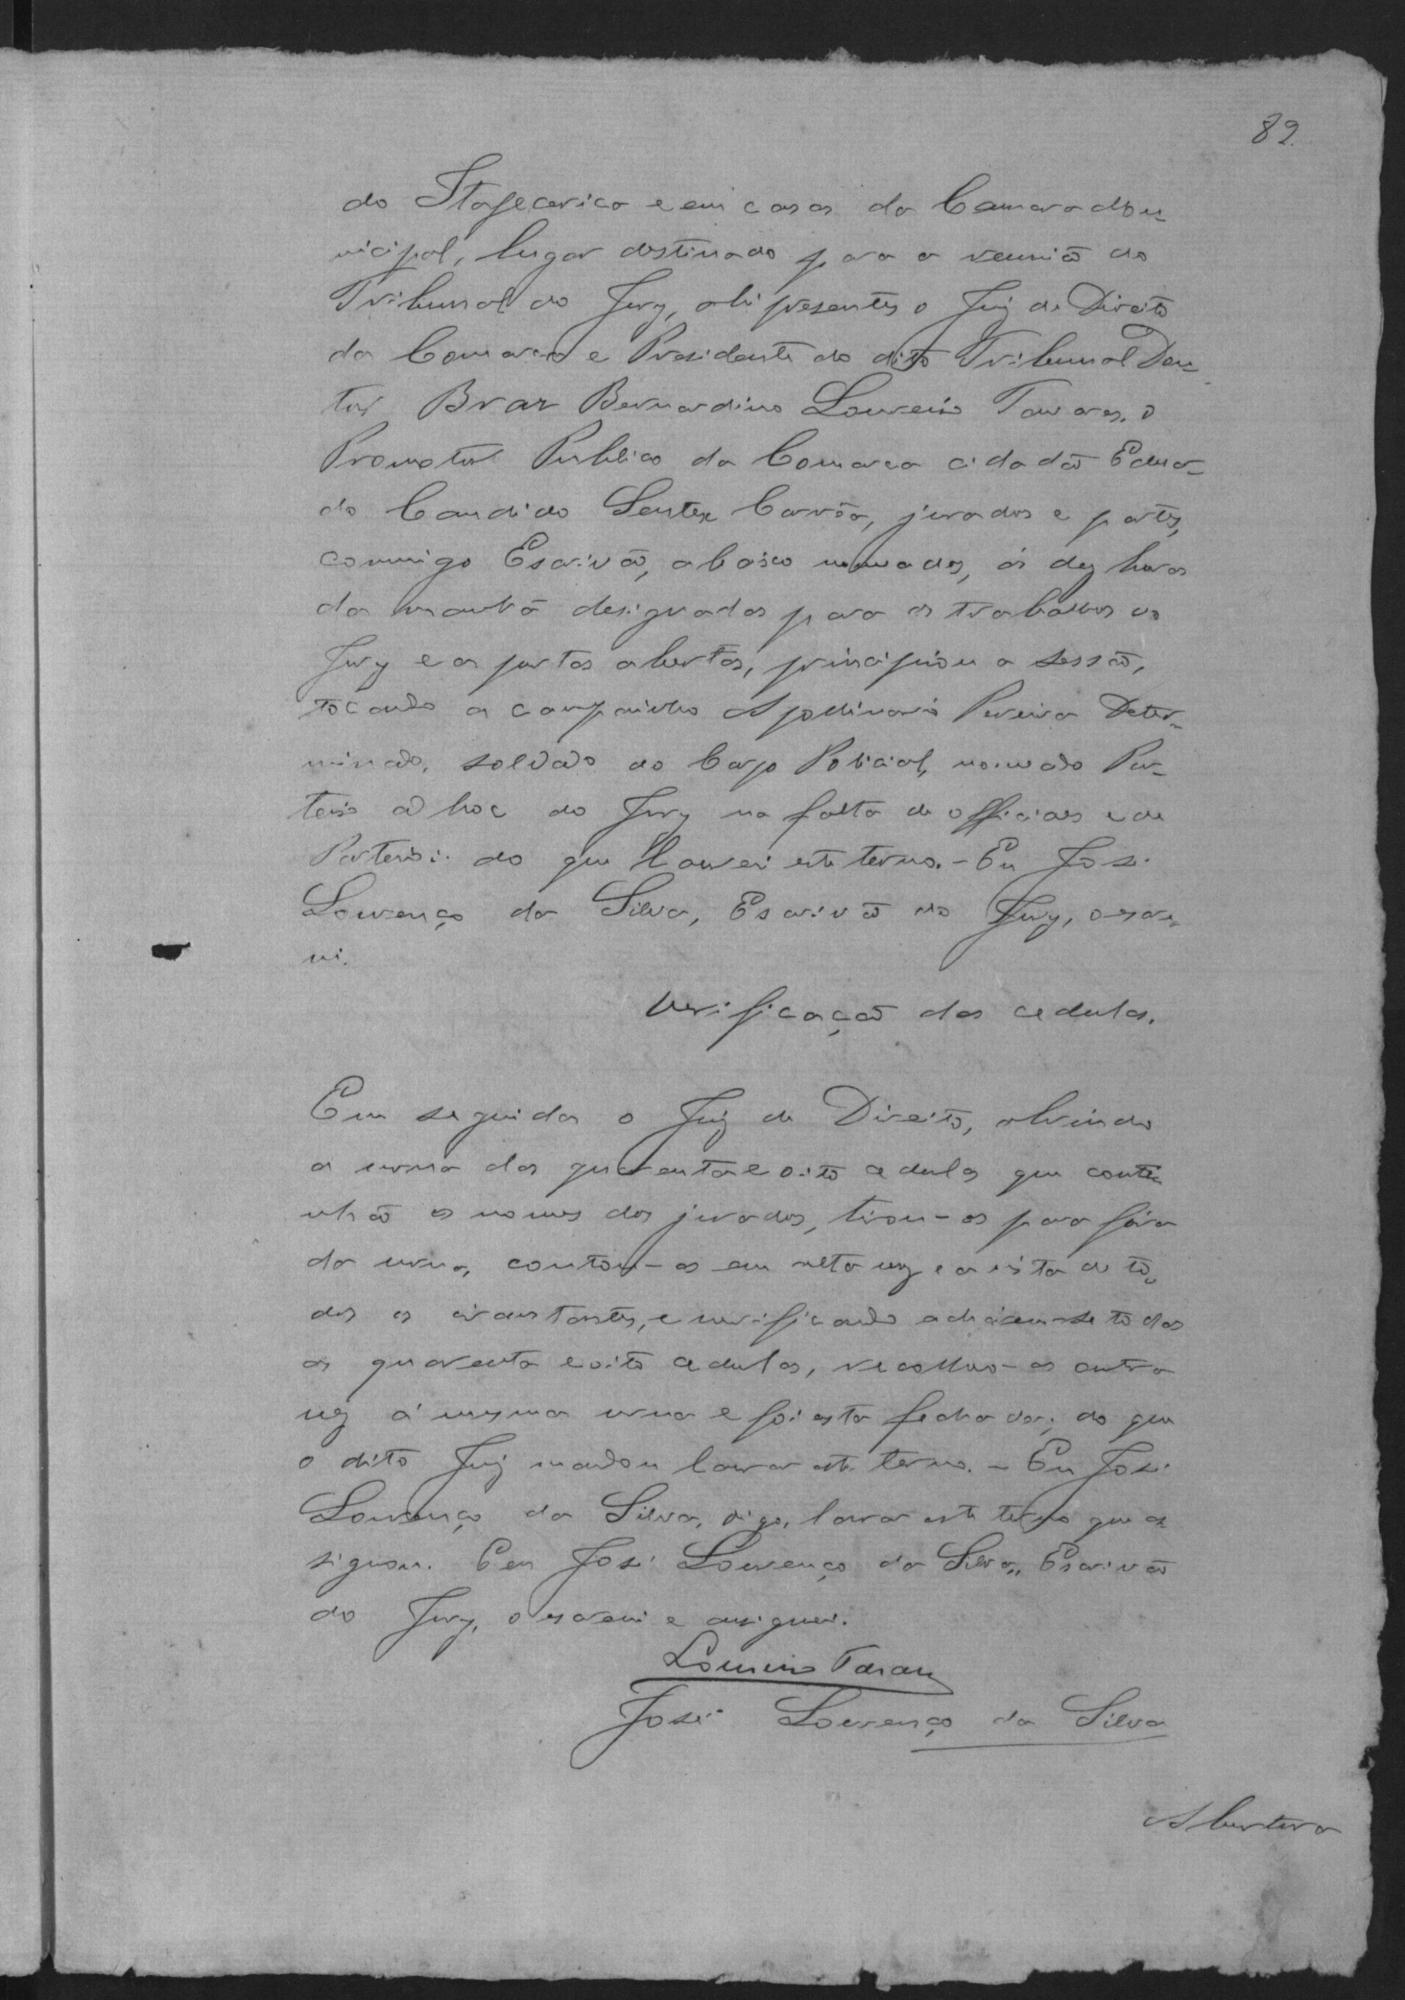 82.
do Itapecerica e em casas da Camara Mu-
nicipal, lugar destinado para a reunião do
Tribunal do Jury, ahi presentes o Juiz de Direito
da Comarca e Presidente do dito Tribunal Dou-
tor Braz Bernardino Loureiro Tavares, o
Promotor Publico da Comarca cidadão Eduar-
do Candido Carrão, jurados e partes,
commigo Escrivão, abaixo nomeados, ás dez horas
da manhã designadas para os trabalhos do
Jury e as portas abertas, principiou a sessão,
tocando a campainha Apollinario Pereira Deter-
minado, soldado do Corpo Policial, nomeado Por-
teiro ad hoc do Jury na falta de officiaes e de
Porteiro: do que lavrei este termo. - Eu José
Lourenço da Silva, Escrivão do Jury, o escre-
vi.
Verificação das cedulas.
Em seguida o Juiz de Direito, abrindo
a urna das quarenta e oito cedulas que conti-
nhão os nomes dos jurados, tirou-as para fóra
da urna, contou-as em alta voz e a vista de to-
dos os circunstantes, e verificando acharem-se todas
as quarenta e oito cedulas, recolheu-as outra
vez á mesma urna e foi esta fechada; do que
o dito Juiz mandou lavrar este termo. - Eu José
Lourenço da Silva, digo, lavrar este termo que as-
signou. Eu José Lourenço da Silva, Escrivão
do Jury, o escrevi e assignei.
Loureiro Tavares
José Lourenço da Silva
Abertura